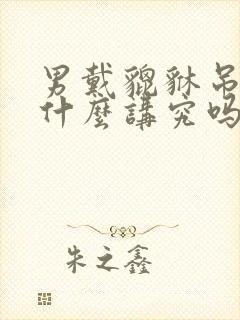 男戴貔貅吊
什麼講究吗
朱之鑫